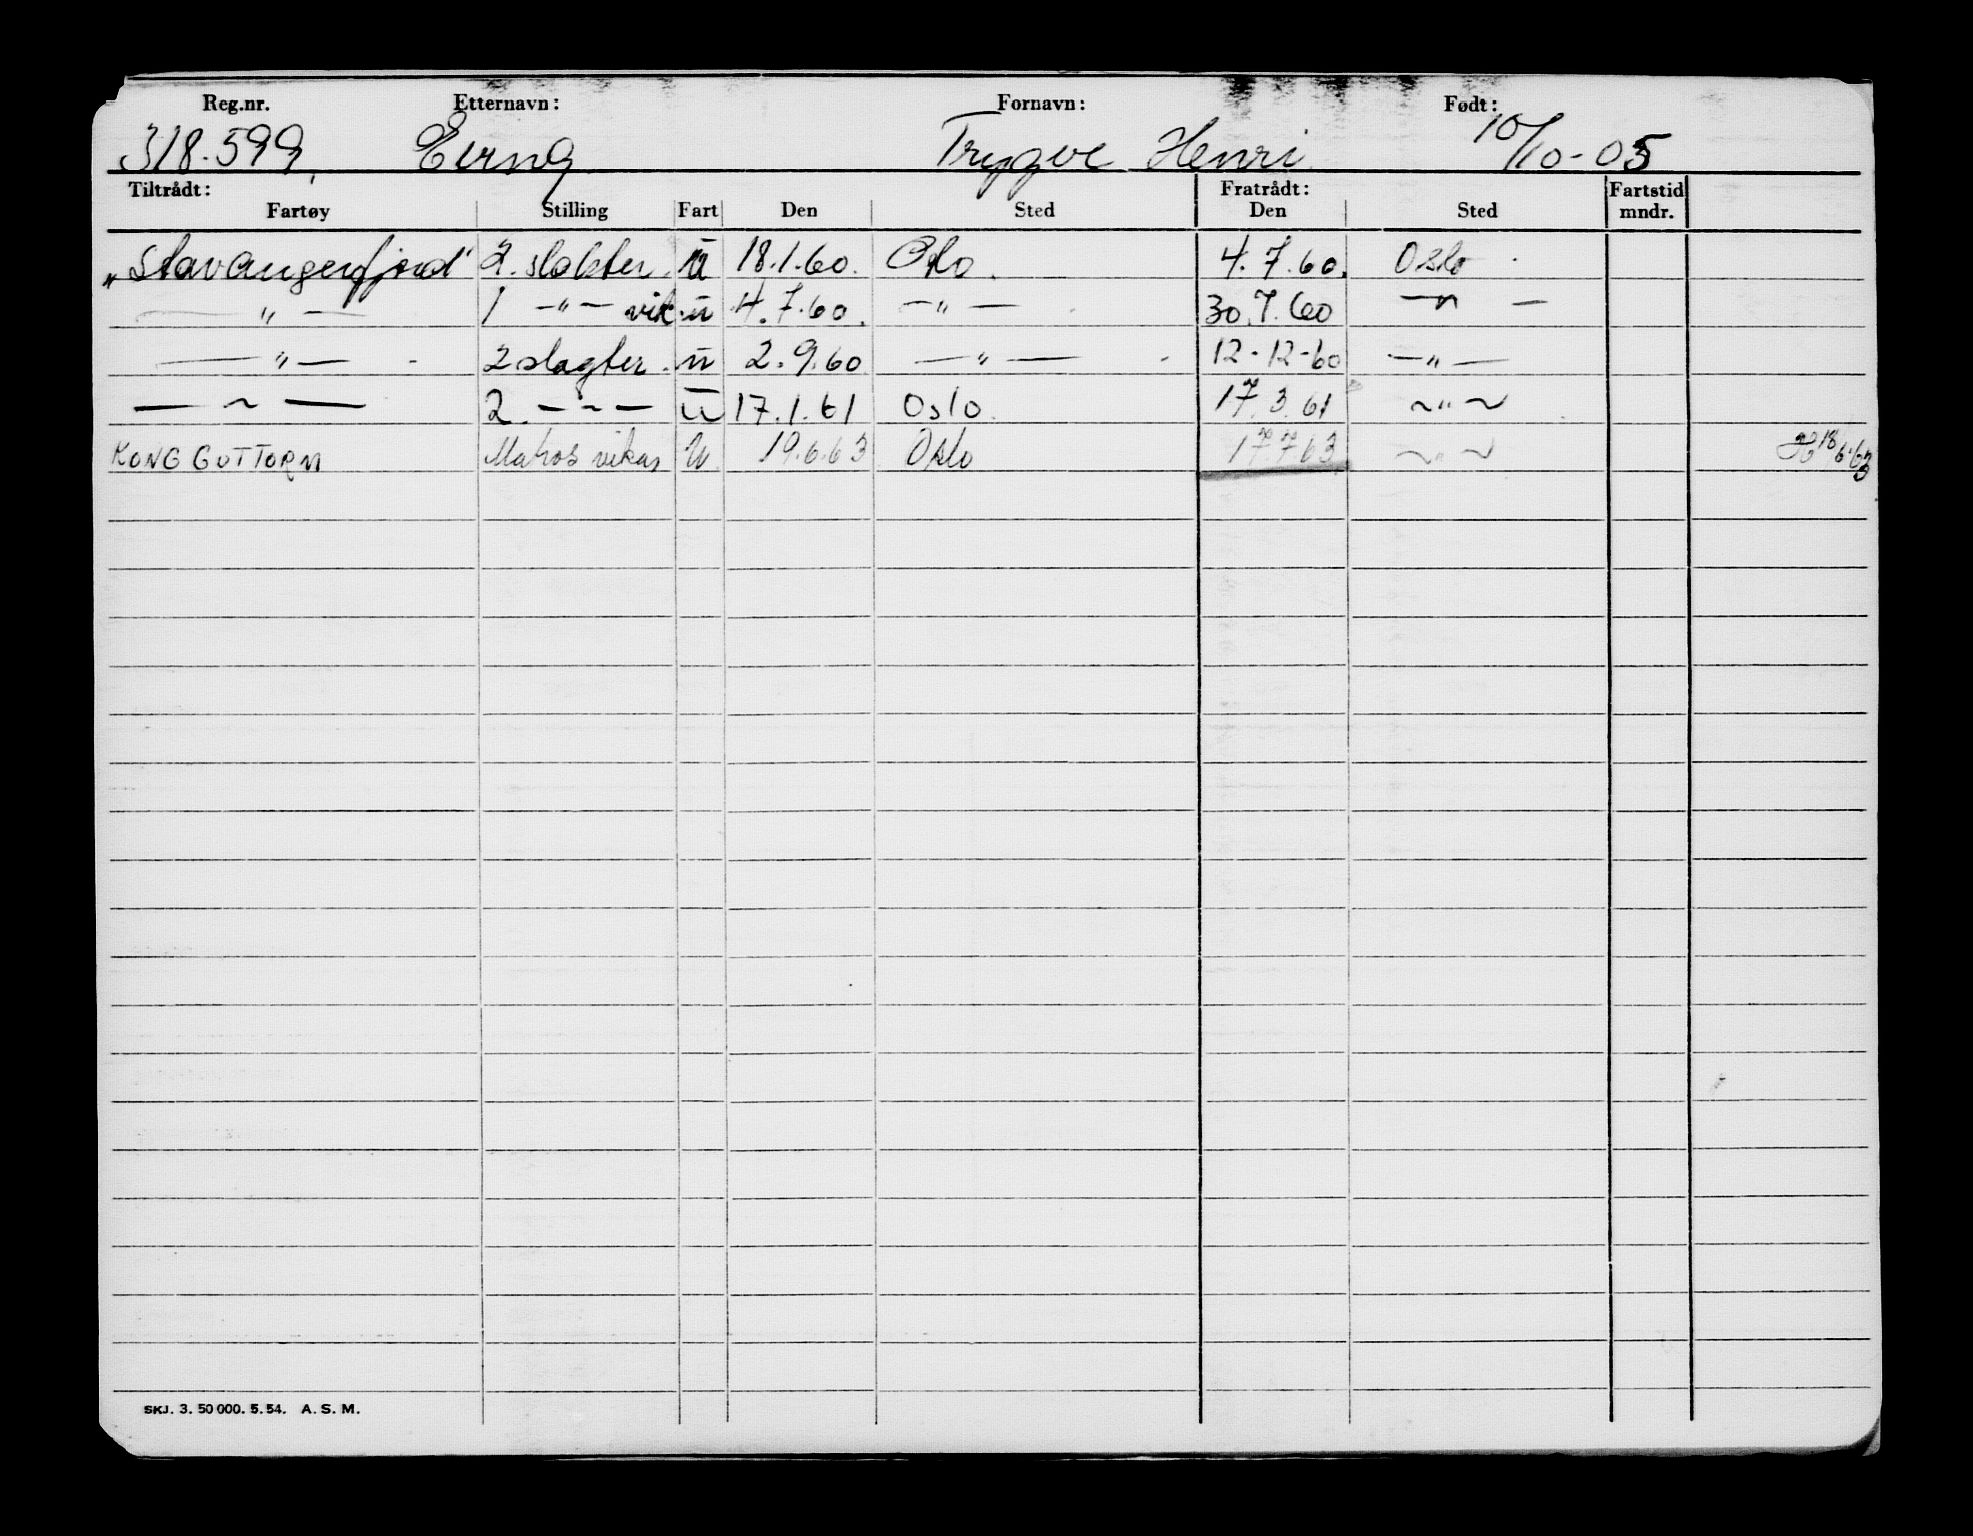 Reg.nr. Etternavn: Fornavn: Født:
318.599. Eirng Trygve Henri 10/10-05
Tiltrådt: Fratrådt: Fartstid
Fartøy Stilling Fart Den Sted Den Sted mndr.
"Stavangerfjord" 2. slakter. u 18.1.60. Oslo. 4.7.60. Oslo
— " — 1 — " — vik. u 4.7.60. — " — 30.7.60 — " —
— " — 2 slagter. u 2.9.60 — " — 12-12-60 — " —
— ~ — 2. — ~ — u 17.1.61 Oslo. 17.3.61 ~ " ~
KONG GUTTORM Matros vikar U 19.6.63 Oslo 17.7.63 ~ " ~ 18/6.63
SKJ. 3. 50 000. 5. 54. A. S. M.